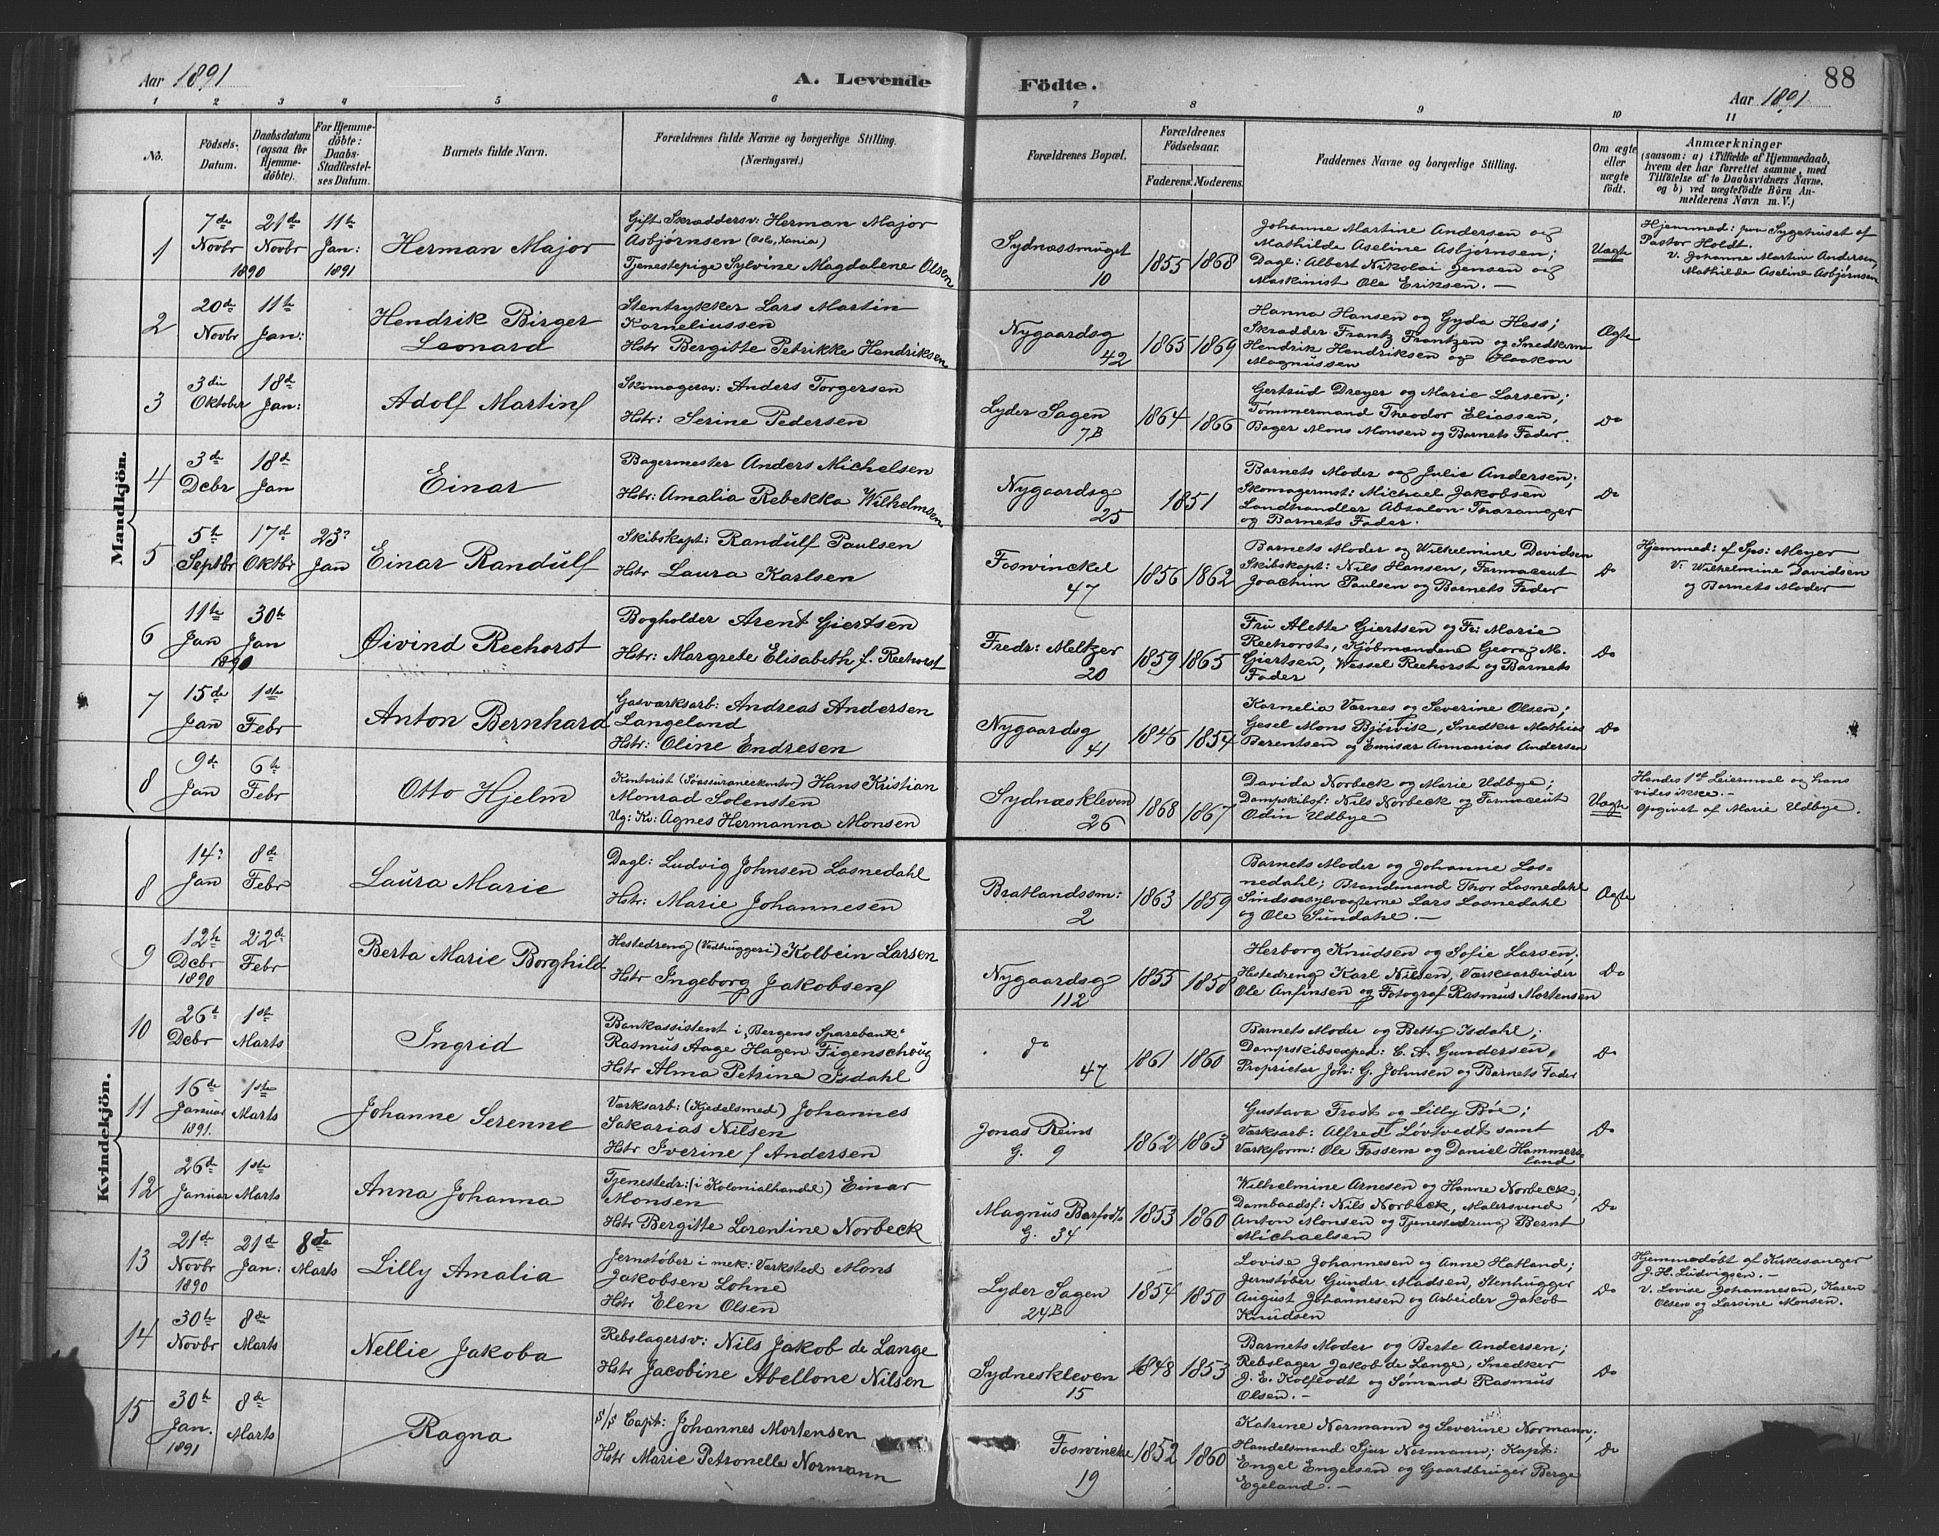 Aar 1891
A. Levende
Födte.
88
Aar 1891
1 2 3 4 5 6 7 8 9 10 11
No.
Födsels-
Datum.
Daabsdatum
(ogsaa for
Hjemme-
döbte).
For Hjemme-
döbte:
Daabs-
Stadfæstel-
ses Datum.
Barnets fulde Navn.
Forældrenes fulde Navne og borgerlige Stilling.
(Næringsvei.)
Forældrenes Bopæl.
Forældrenes
Födselsaar.
Faderens. Moderens.
Faddernes Navne og borgerlige Stilling.
Om ægte
eller
uægte
födt.
Anmærkninger
(saasom: a) i Tilfælde af Hjemmedaab,
hvem der har forrettet samme, med
Tilföielse af to Daabsvidners Navne,
og b) ved uægtefödte Börn An-
melderens Navn m. V.)
Mandkjön.
1
7de
Novbr
21de
Novbr
1890
11te
Jan:
1891
Herman Major
Gift Skræddersv: Herman Major
Asbjørnsen (Oslo, Xania)
Tjenestepige Sylvine Magdalene Olsen
Sydnæssmuget
10
1855 1868
Johanne Martine Andersen og
Mathilde Aseline Asbjørnsen;
Dagl: Albert Nikolai Jensen og
Maskinist Ole Eriksen. —
Uægte
Hjemmed: paa Sygehuset af
Pastor Holdt.
V. Johanne Martin Andersen,
Mathilde Aseline Asbjørnsen
2
20de
Novbr
11te
Jan:
Hendrik Birger
Leonard
Stentrykker Lars Martin
Korneliussen
Hstr Bergitte Petrikke Hendriksen
Nygaardsg
42
1865 1869
Hanna Hansen og Gyda Hess;
Skrædder Frantz Frantzen og Snedkerne
Hendrik Hendriksen og Haakon
Magnussen
Ægte
3
3die
Oktober
18de
Jan:
Adolf Martin
Skomagersv: Anders Torgersen
Hstr: Serine Pedersen
Lyder Sagen
7B
1864 1866
Gertrud Dreyer og Marie Larsen;
Tømmermand Theodor Eliassen,
Bager Mons Monsen og Barnets Fader.
Do
4
3de
Dcbr
18de
Jan
Einar
Bagermester Anders Michelsen
Hstr: Amalia Rebekka Wilhelmsen
Nygaardsg
25
1851
Barnets Moder og Julie Andersen;
Skomagermst: Michael Jakobsen
Landhandler Absalon Tharanger
og Barnets Fader.
Do
5
5te
Septbr
17d
Oktbr
23?
Jan
Einar Randulf
Skibskapt: Randulf Paulsen
Hstr Laura Karlsen
Fosvinckel
47
1856 1862
Barnets Moder og Wilhelmine Davidsen
Skibskapt: Nils Hansen, Farmaceut
Joachim Paulsen og Barnets Fader
Do
Hjemmed: af Spr: Meyer
V. Wilhelmine Davidsen
og Barnets Moder
6
11te
Jan
30te
Jan
1890
Øivind Reehorst
Bogholder Arent Giertsen
Hstr: Margrete Elisabeth f. Reehorst
Fredr: Meltzer
20
1859 1865
Fru Alette Giertsen og Fr: Marie
Reehorst, Kjøbmændene Georg M.
Giertsen, Wessel Reehorst og Barnets
Fader
Do
7
15de
Jan
1ste
Febr
Anton Bernhard
Gasværksarb: Andreas Andersen
Langeland
Hstr: Oline Endresen
Nygaardsg
41
1846 1854
Kornelia Værnes og Severine Olsen;
Gesel Mons Bjørvik, Snedker Mathias
Berentsen og Emisær Annanias Andersen
Do
8
9de
Jan
6te
Febr
Otto Hjelm
Kontorist (Søassuranсekontor) Hans Kristian
Monrad Solensten
Ug: Kv: Agnes Hermanna Monsen
Sydnæskleven
26
1868 1867
Davida Norbeck og Marie Udbye;
Dampskibsf: Nils Norbeck og Farmaceut
Odin Udbye
Uægte
Hendes 1ste Leiermaal og hans
vides ikke. —
Opgivet af Marie Udbye.
Kvindekjön.
8
14?
Jan
8de
Febr
Laura Marie
Dagl: Ludvig Johnsen Lasnedahl
Hstr: Marie Johannesen
Bratlandssm:
2
1863 1859
Barnets Moder og Johanne Las-
nedahl; Brandmand Thor Lasnedahl
Lars Lasnedahl
og Ole Sundahl. —
Ægte
9
12te
Dcbr
1890
22de
Febr
Berta Marie Borghild
Hestedreng (Vedhuggeri) Kolbein Larsen
Hstr Ingeborg Jakobsen
Nygaardsg
112
1855 1858
Herborg Knudsen og Sofie Larsen;
Hestedreng Karl Nilsen, Værksarbeider
Ole Anfinsen og Fotograf Rasmus Mortensen
Do
10
26d
Dcbr
1ste
Marts
Ingrid
Bankassistent i „Bergens Sparebank“
Rasmus Aage Hagen Figenschoug
Hstr Alma Petrine Isdahl
do
47
1861 1860
Barnets Moder og Betty Isdahl;
Dampskibsexped: C. A. Gundersen,
Proprietær Joh: G. Johnsen og Barnets Fader
Do
11
16de
Januar
1891.
1ste
Marts
Johanne Serenne
Værksarb: (Kjedelsmed) Johannes
Sakarias Nilsen
Hstr Iverine f Andersen
Jonas Reins
G. 9
1862 1863
Gustava Frost og Lilly Bøe;
Værksarb: Alfred Løvtvedt samt
Værksform: Ole Fossem og Daniel Hammers-
land
Do
12
26de
Januar
1ste
Marts
Anna Johanna
Tjenestedr: (i Kolonialhandel) Einar
Monsen
Hstr Bergitte Lorentine Norbeck
Magnus Barfods
G. 34
1853 1860
Wilhelmine Arnesen og Hanne Norbeck;
Dambaadsf: Nils Norbeck, Malersvend
Anton Monsen og Tjenestedreng Bernt
Michaelsen
Do
13
21de
Novbr
1890
21de
Jan:
8de
Marts
Lilly Amalia
Jernstøber i mek: Værksted Mons
Jakobsen Lohne
Hstr Elen Olsen
Lyder Sagen
24B
1854 1850
Lovise Johannesen og Anne Hatland;
Jernstøber Gunder Madsen, Stenhugger
August Johannesen og Arbeider Jakob
Knudsen
Do
Hjemmedøbt af Kirkesanger
J. H. Ludvigsen. —
V. Lovise Johannesen, Karen
Olsen og Larsine Monsen.
14
30te
Novbr
8de
Marts
Nellie Jakoba
Rebslagersv: Nils Jakob de Lange
Hstr Jacobine Abellone Nilsen
Sydneskleven
15
1848 1853
Barnets Moder og Berte Andersen;
Rebslager Jakob de Lange, Snedker
J. E. Kolflodt og Sømand Rasmus
Olsen. —
Do
15
30te
Jan.
1891
8de
Marts
Ragna
S/S Capt: Johannes Mortensen
Hstr Marie Petronelle Normann
Fosvincke
19
1852 1860
Katrine Normann og Severine Normann;
Handelsmand Sjur Normann; Kapt:
Engel Engelsen og Gaardbruger Berge
Egeland. —
Do